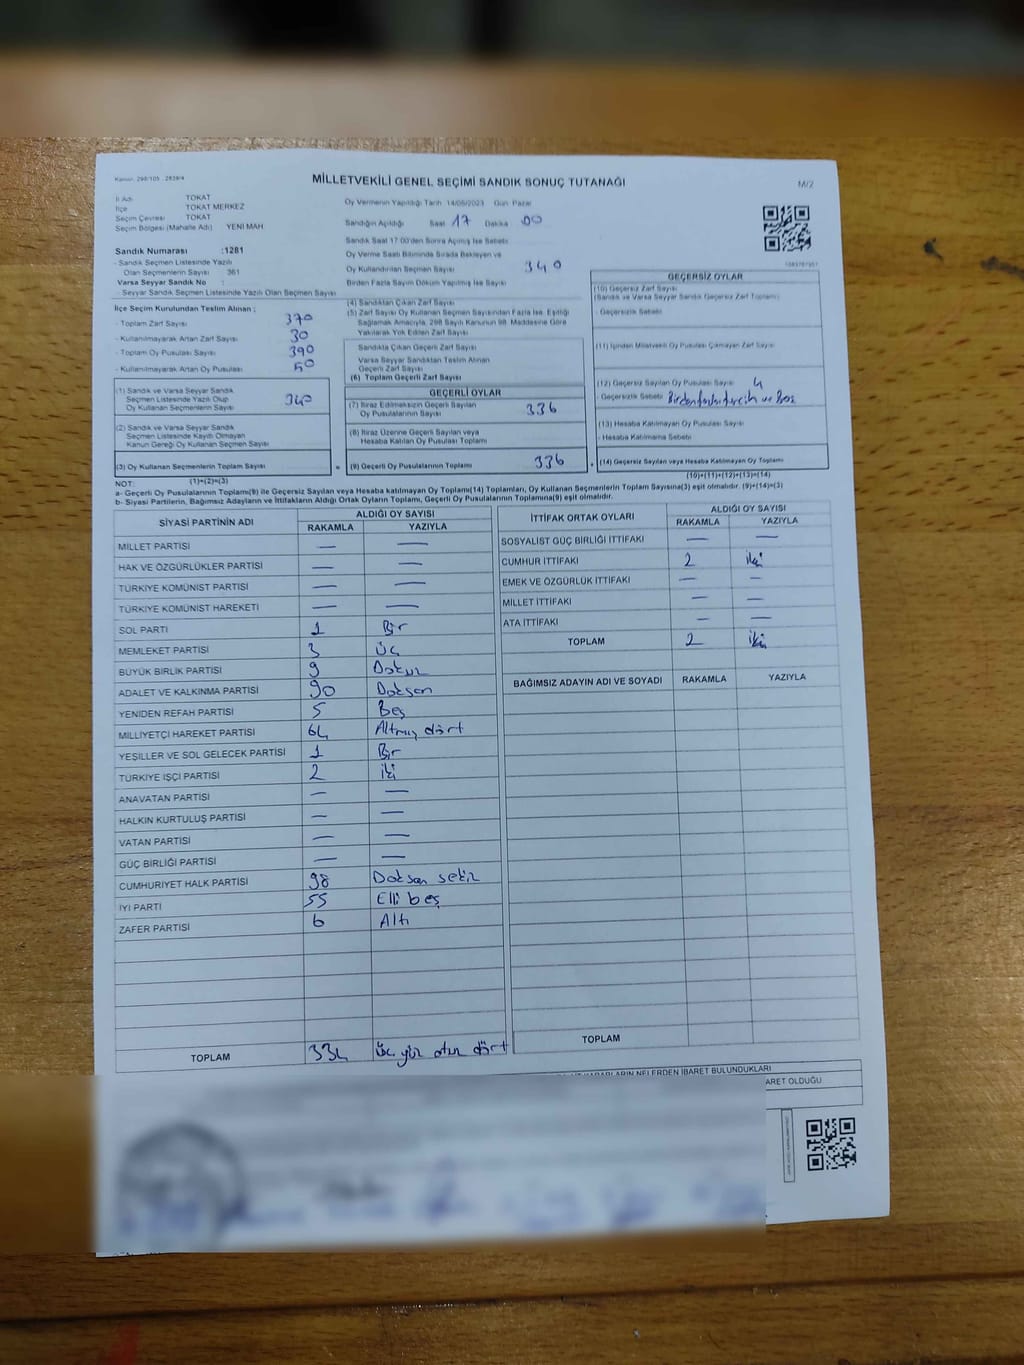 Kanun: 298/105 - 2839/4
MİLLETVEKİLİ GENEL SEÇİMİ SANDIK SONUÇ TUTANAĞI
M/2
İl Adı TOKAT
İlçe TOKAT MERKEZ
Seçim Çevresi TOKAT
Seçim Bölgesi (Mahalle Adı) YENİ MAH
Sandık Numarası :1281
- Sandık Seçmen Listesinde Yazılı
Olan Seçmenlerin Sayısı 361
Varsa Seyyar Sandık No :
- Seyyar Sandık Seçmen Listesinde Yazılı Olan Seçmen Sayısı
Oy Vermenin Yapıldığı Tarih 14/05/2023 Gün Pazar
Sandığın Açıldığı Saat 17 Dakika 00
Sandık Saat 17:00'den Sonra Açılmış İse Sebebi
Oy Verme Saati Bitiminde Sırada Bekleyen ve
Oy Kullandırılan Seçmen Sayısı 340
Birden Fazla Sayım Döküm Yapılmış İse Sayısı
İlçe Seçim Kurulundan Teslim Alınan ;
- Toplam Zarf Sayısı 370
- Kullanılmayarak Artan Zarf Sayısı 30
- Toplam Oy Pusulası Sayısı 390
- Kullanılmayarak Artan Oy Pusulası 50
(1) Sandık ve Varsa Seyyar Sandık
Seçmen Listesinde Yazılı Olup
Oy Kullanan Seçmenlerin Sayısı 340
(2) Sandık ve Varsa Seyyar Sandık
Seçmen Listesinde Kayıtlı Olmayan
Kanun Gereği Oy Kullanan Seçmen Sayısı
(3) Oy Kullanan Seçmenlerin Toplam Sayısı
(1)+(2)=(3)
(4) Sandıktan Çıkan Zarf Sayısı
(5) Zarf Sayısı Oy Kullanan Seçmen Sayısından Fazla İse, Eşitliği
Sağlamak Amacıyla, 298 Sayılı Kanunun 98. Maddesine Göre
Yakılarak Yok Edilen Zarf Sayısı
Sandıkta Çıkan Geçerli Zarf Sayısı
Varsa Seyyar Sandıktan Teslim Alınan
Geçerli Zarf Sayısı
(6) Toplam Geçerli Zarf Sayısı
GEÇERLİ OYLAR
(7) İtiraz Edilmeksizin Geçerli Sayılan
Oy Pusulalarının Sayısı 336
(8) İtiraz Üzerine Geçerli Sayılan veya
Hesaba Katılan Oy Pusulası Toplamı
= (9) Geçerli Oy Pusulalarının Toplamı 336
GEÇERSİZ OYLAR
(10) Geçersiz Zarf Sayısı
(Sandık ve Varsa Seyyar Sandık Geçersiz Zarf Toplamı)
- Geçersizlik Sebebi
(11) İçinden Milletvekili Oy Pusulası Çıkmayan Zarf Sayısı
(12) Geçersiz Sayılan Oy Pusulası Sayısı 4
- Geçersizlik Sebebi ve Boş
(13) Hesaba Katılmayan Oy Pusulası Sayısı
- Hesaba Katılmama Sebebi
+ (14) Geçersiz Sayılan veya Hesaba Katılmayan Oy Toplamı
(10)+(11)+(12)+(13)=(14)
NOT:
a- Geçerli Oy Pusulalarının Toplamı(9) ile Geçersiz Sayılan veya Hesaba katılmayan Oy Toplamı(14) Toplamları, Oy Kullanan Seçmenlerin Toplam Sayısına(3) eşit olmalıdır. (9)+(14)=(3)
b- Siyasi Partilerin, Bağımsız Adayların ve İttifakların Aldığı Ortak Oyların Toplamı, Geçerli Oy Pusulalarının Toplamına(9) eşit olmalıdır.
SİYASİ PARTİNİN ADI ALDIĞI OY SAYISI
RAKAMLA YAZIYLA
MİLLET PARTİSI — —
HAK VE ÖZGÜRLÜKLER PARTİSİ — —
TÜRKİYE KOMÜNİST PARTİSİ — —
TÜRKİYE KOMÜNİST HAREKETİ — —
SOL PARTİ 1 Bir
MEMLEKET PARTİSİ 3 Üç
BÜYÜK BİRLİK PARTİSİ 9 Dokuz
ADALET VE KALKINMA PARTİSİ 90 Doksan
YENİDEN REFAH PARTİSİ 5 Beş
MİLLİYETÇİ HAREKET PARTİSİ 64 Altmış dört
YEŞİLLER VE SOL GELECEK PARTİSİ 1 Bir
TÜRKİYE İŞÇİ PARTİSİ 2 iki
ANAVATAN PARTİSİ — —
HALKIN KURTULUŞ PARTİSİ — —
VATAN PARTİSİ — —
GÜÇ BİRLİĞİ PARTİSİ — —
CUMHURİYET HALK PARTİSİ 98 Doksan sekiz
İYİ PARTİ 55 Elli beş
ZAFER PARTİSİ 6 Altı
TOPLAM 334 Üç yüz otuz dört
İTTİFAK ORTAK OYLARI ALDIĞI OY SAYISI
RAKAMLA YAZIYLA
SOSYALİST GÜÇ BİRLİĞİ İTTİFAKI — —
CUMHUR İTTİFAKI 2 iki
EMEK VE ÖZGÜRLÜK İTTİFAKI — —
MİLLET İTTİFAKI — —
ATA İTTİFAKI — —
TOPLAM 2 iki
BAĞIMSIZ ADAYIN ADI VE SOYADI RAKAMLA YAZIYLA
TOPLAM
KARARLARIN NELERDEN İBARET BULUNDUKLARI
ARET OLDUĞU